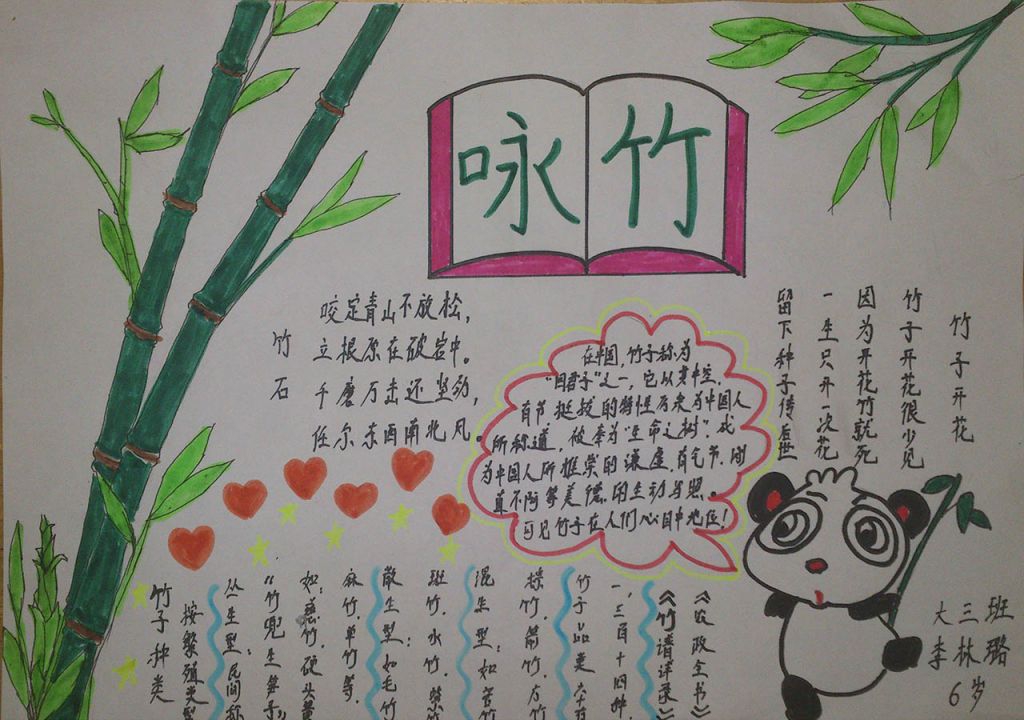 咏竹
竹石
咬定青山不放松，
立根原在破岩中。
千磨万击还坚劲，
任尔东西南北风。
在中国，竹子称为
"四君子"之一，它以其中空、
有节挺拔的特性历来为中国人
所称道，被奉为"生命之树"，成
为中国人所推崇的谦虚、有气节、刚
直不阿等美德的生动写照。
可见竹子在人们心目中地位！
竹子开花
竹子开花很少见
因为开花竹就死
一生只开一次花
留下种子传后世
竹子种类
按繁殖类型
丛生型：民间称
"竹兜生笋子"
如：慈竹，硬头黄
麻竹，单竹等。
散生型：如毛竹
斑竹，水竹，紫竹
混生型：如苦竹
棕竹，箭竹，方竹
竹子品类
一，三百十四种，
《竹谱详录》
《农政全书》
大三班
李林璐
6岁